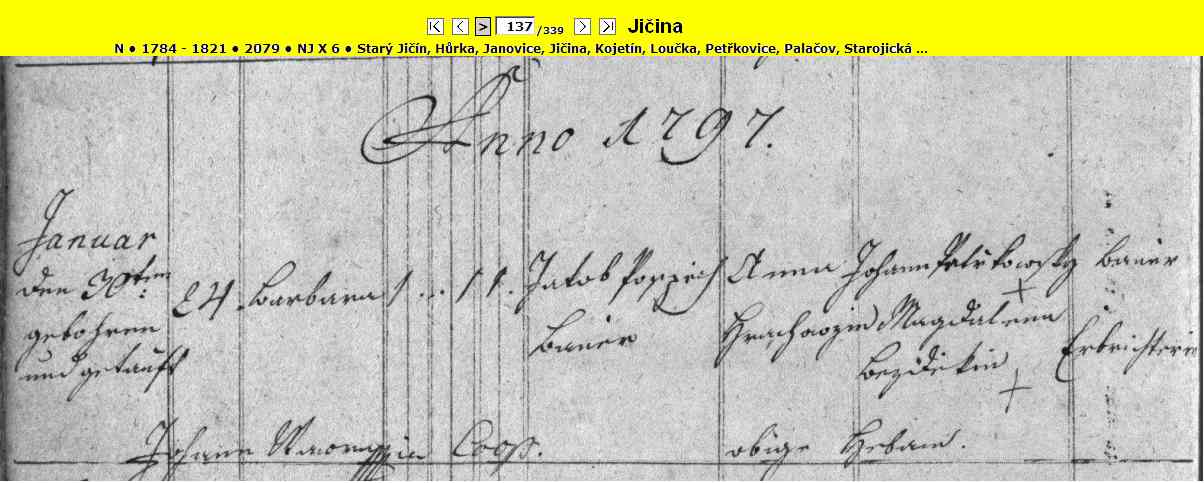 137 /339 Jičina
N • 1784 - 1821 • 2079 • NJ X 6 • Starý Jičín, Hůrka, Janovice, Jičina, Kojetín, Loučka, Petřkovice, Palačov, Starojická ...
Anno 1797.
Januar
den 30ten gebohren und getauft
24. Barbara 1 . . . 1 1. Jakob Poppich Bauer
Anna
Johann Petrkowsky Bauer
Magdalena Bezdiekin Erbrichterin
Johann Coop. obige Hebam.